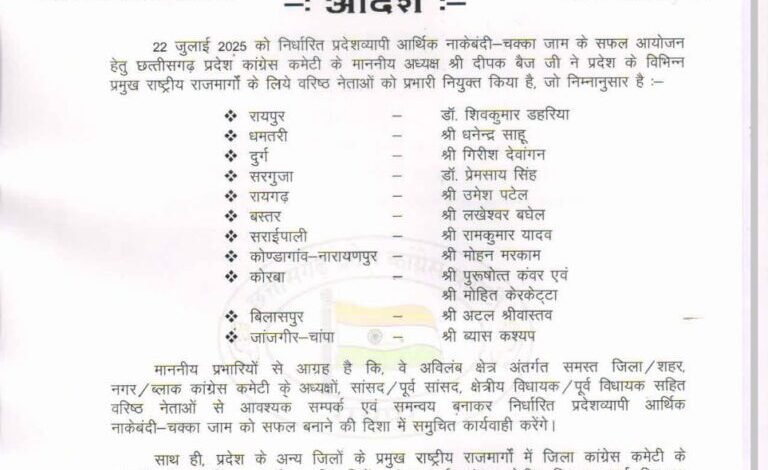 –: आदेश :–
22 जुलाई 2025 को निर्धारित प्रदेशव्यापी आर्थिक नाकेबंदी–चक्का जाम के सफल आयोजन
हेतु छत्तीसगढ़ प्रदेश कांग्रेस कमेटी के माननीय अध्यक्ष श्री दीपक बैज जी ने प्रदेश के विभिन्न
प्रमुख राष्ट्रीय राजमार्गों के लिये वरिष्ठ नेताओं को प्रभारी नियुक्त किया है, जो निम्नानुसार है :–
❖ रायपुर – डॉ. शिवकुमार डहरिया
❖ धमतरी – श्री धनेन्द्र साहू
❖ दुर्ग – श्री गिरीश देवांगन
❖ सरगुजा – डॉ. प्रेमसाय सिंह
❖ रायगढ़ – श्री उमेश पटेल
❖ बस्तर – श्री लखेश्वर बघेल
❖ सराईपाली – श्री रामकुमार यादव
❖ कोण्डागांव–नारायणपुर – श्री मोहन मरकाम
❖ कोरबा – श्री पुरूषोत्त कंवर एवं
श्री मोहित केरकेट्टा
❖ बिलासपुर – श्री अटल श्रीवास्तव
❖ जांजगीर–चांपा – श्री ब्यास कश्यप
माननीय प्रभारियों से आग्रह है कि, वे अविलंब क्षेत्र अंतर्गत समस्त जिला/शहर,
नगर/ब्लाक कांग्रेस कमेटी के अध्यक्षों, सांसद/पूर्व सांसद, क्षेत्रीय विधायक/पूर्व विधायक सहित
वरिष्ठ नेताओं से आवश्यक सम्पर्क एवं समन्वय बनाकर निर्धारित प्रदेशव्यापी आर्थिक
नाकेबंदी–चक्का जाम को सफल बनाने की दिशा में समुचित कार्यवाही करेंगे।
साथ ही, प्रदेश के अन्य जिलों के प्रमुख राष्ट्रीय राजमार्गों में जिला कांग्रेस कमेटी के